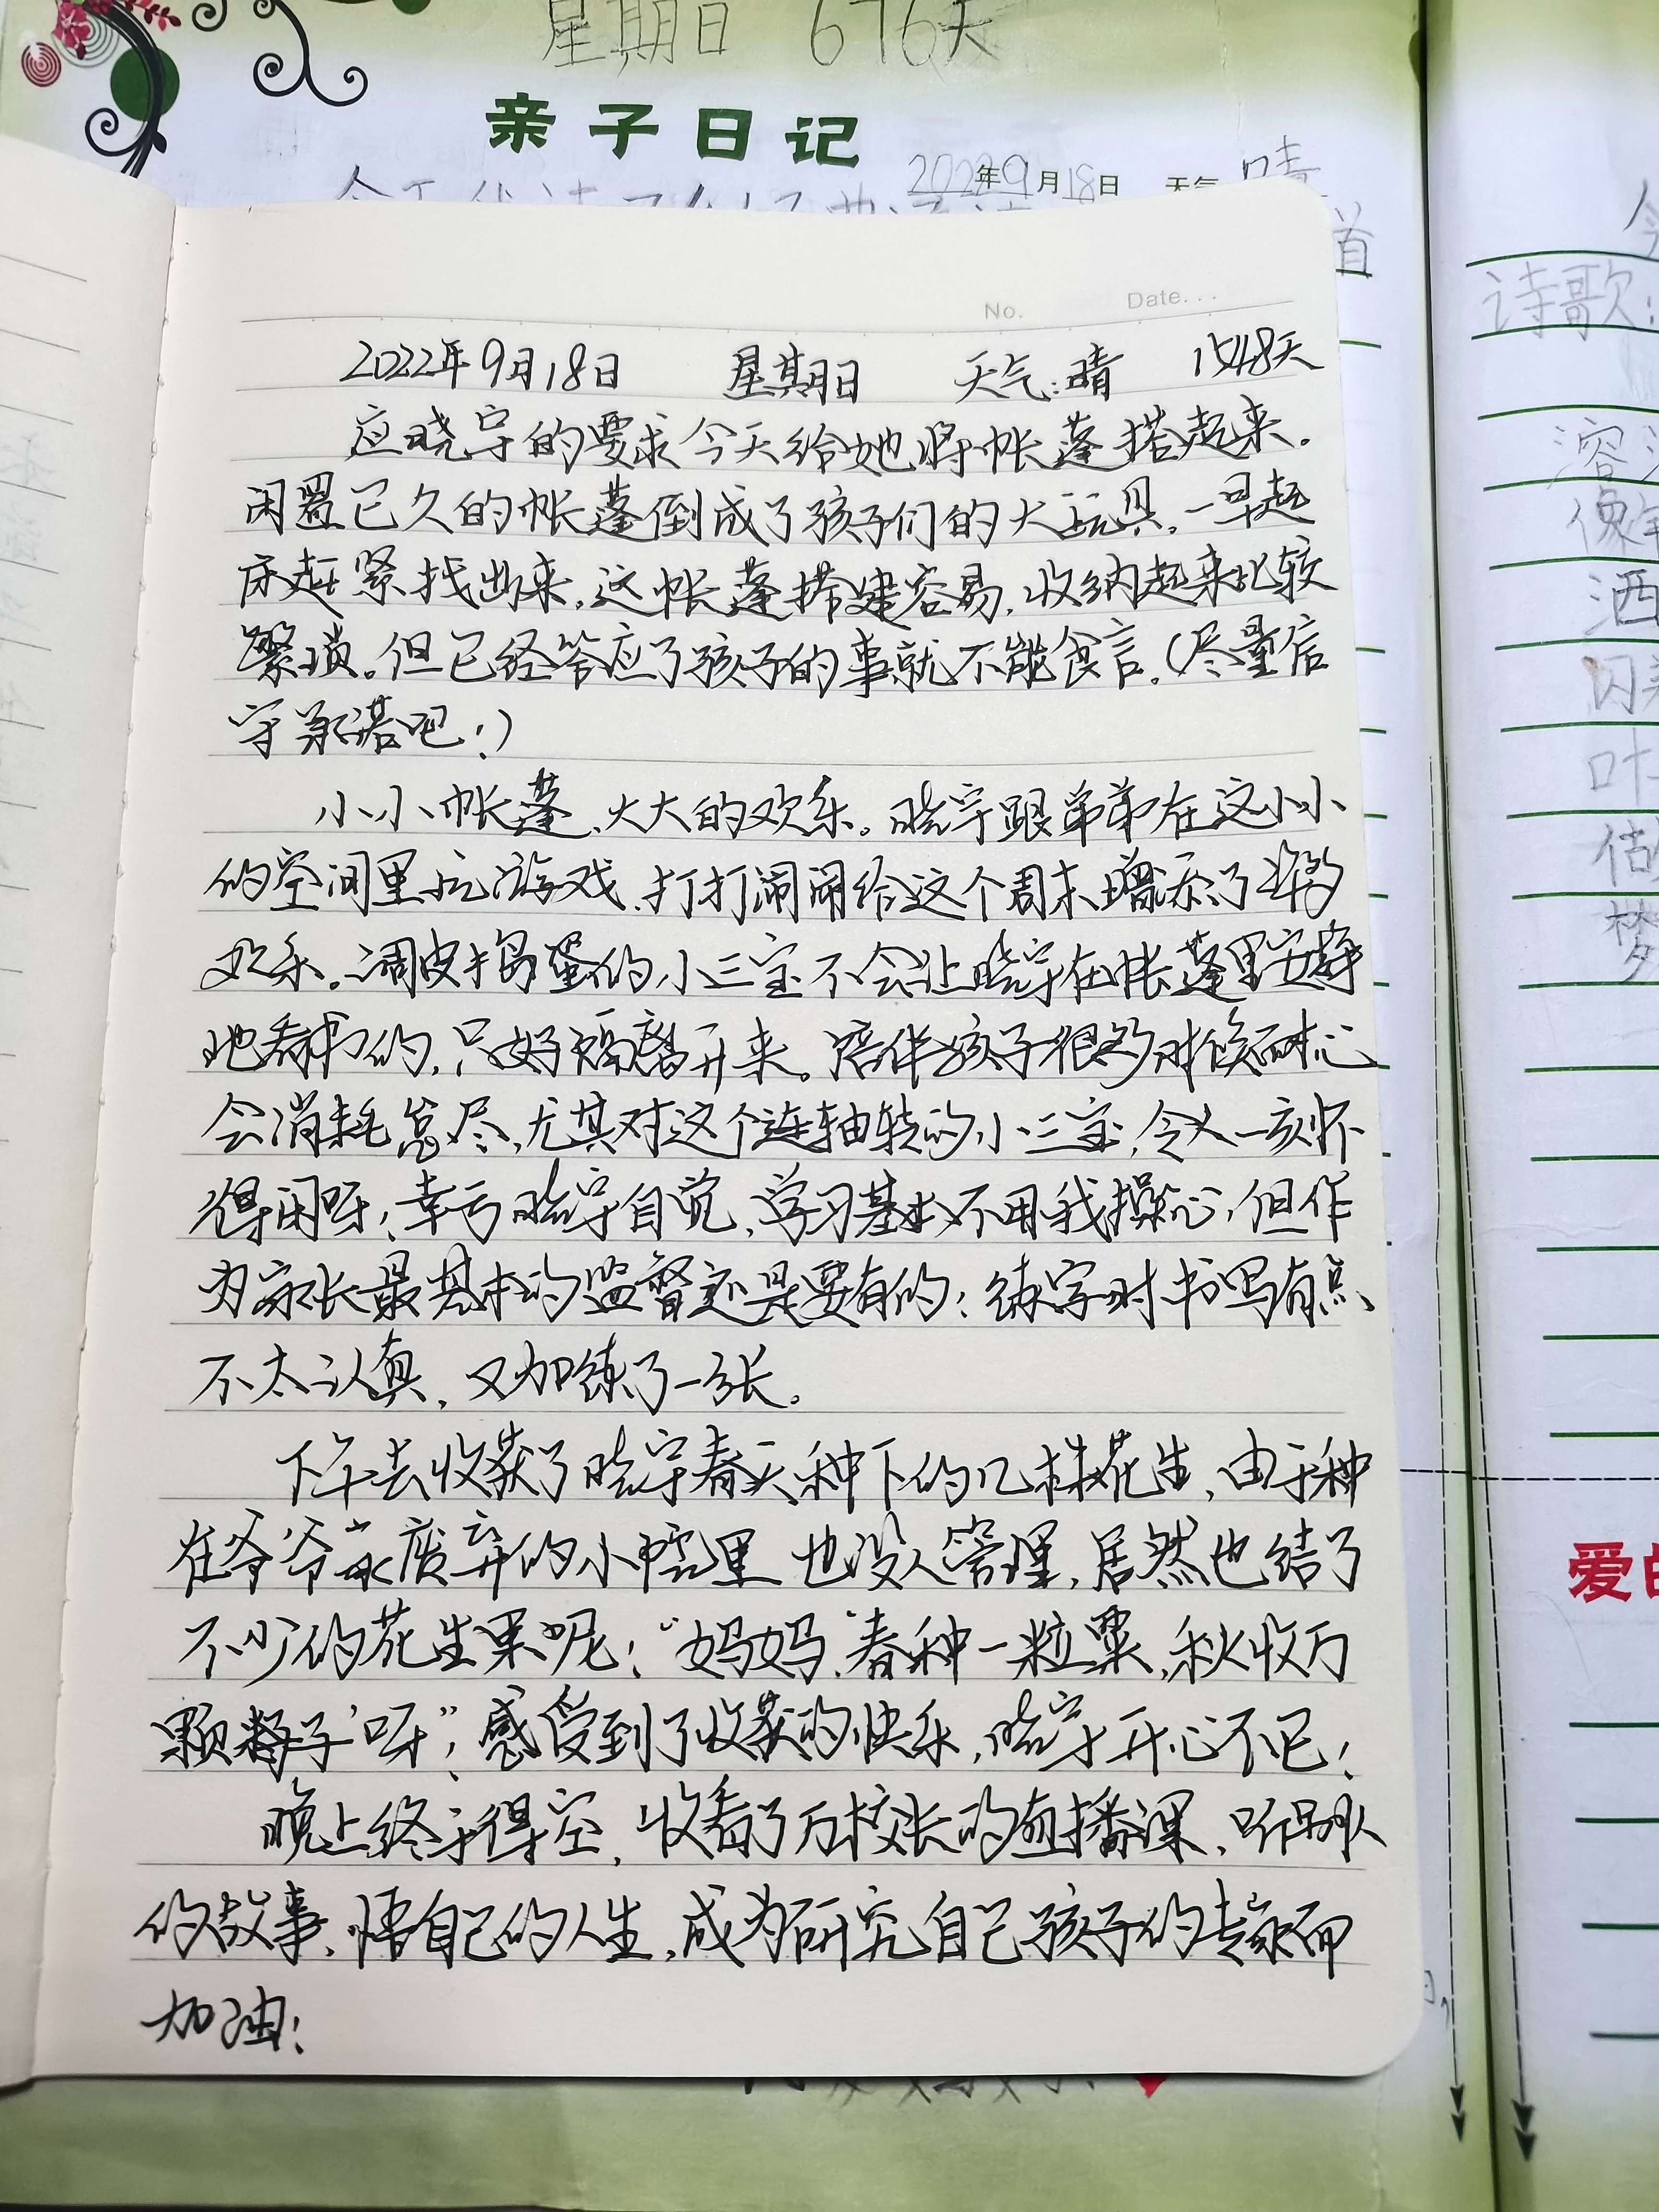 星期日 676天
亲子日记
2022年9月18日 天气 晴
首
No. Date...
2022年9月18日 星期日 天气:晴 1548天
应晓宇的要求今天给她将帐蓬搭起来。
闲置已久的帐蓬倒成了孩子们的大玩具,一早起
床赶紧找出来,这帐蓬搭建容易,收纳起来比较
繁琐。但已经答应了孩子的事就不能食言。(尽量信
守承诺吧!)
小小帐蓬、大大的欢乐。晓宇跟弟弟在这小小
的空间里玩游戏、打打闹闹给这个周末增添了许多
欢乐。调皮捣蛋的小三宝不会让晓宇在帐蓬里安静
地看书的,只好隔离开来。陪伴孩子很多时候耐心
会消耗怠尽,尤其对这个连轴转的小三宝,令人一刻不
得闲呀!幸亏晓宇自觉,学习基本不用我操心,但作
为家长最基本的监督还是要有的!练字时书写有点
不太认真,又加练了一张。
下午去收获了晓宇春天种下的几株花生,由于种
在爷爷家废弃的小院里 也没人管理,居然也结了
不少的花生果呢!“妈妈,‘春种一粒粟,秋收万
颗籽子’呀”!感受到了收获的快乐,晓宇开心不已!
晚上终于得空,收看了万校长的直播课,听别人
的故事,悟自己的人生,成为研究自己孩子的专家而
加油!
诗歌:
洒
叶
梦
爱的